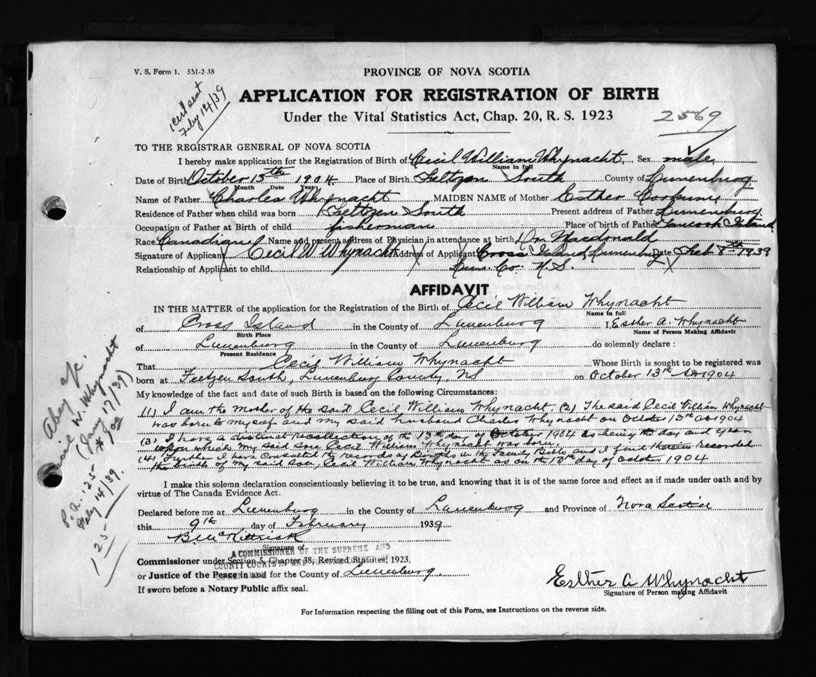 V. S. Form 1. 5M-2-38
PROVINCE OF NOVA SCOTIA
APPLICATION FOR REGISTRATION OF BIRTH
2569
Under the Vital Statistics Act, Chap. 20, R. S. 1923
Feby 14/39
TO THE REGISTRAR GENERAL OF NOVA SCOTIA
I hereby make application for the Registration of Birth of Cecil William Whynacht, Sex male
Name in full
Date of Birth October 13th 1904. Place of Birth South County of Lunenburg
Month Date Year
Name of Father Charles Whynacht MAIDEN NAME of Mother Esther
Residence of Father when child was born South Present address of Father Lunenburg
Occupation of Father at Birth of child fisherman Place of birth of Father Tancook Island
Race Canadian Name and present address of Physician in attendance at birth Macdonald
Signature of Applicant Cecil W Whynacht Address of Applicant Cross Island, Lunenburg Date Feb 8th 1939
Relationship of Applicant to child Lun. Co. N.S.
AFFIDAVIT
IN THE MATTER of the application for the Registration of the Birth of Cecil William Whynacht
Name in full
of Cross Island in the County of Lunenburg I, Esther A. Whynacht
Birth Place Name of Person Making Affidavit
of Lunenburg in the County of Lunenburg do solemnly declare:
Present Residence
That Cecil William Whynacht Whose Birth is sought to be registered was
born at South, Lunenburg County, NS on October 13th AD 1904
My knowledge of the fact and date of such Birth is based on the following Circumstances:
(1) I am the mother of the said Cecil William Whynacht, (2) The said Cecil William Whynacht
was born to myself and my said husband Charles Whynacht on October 13th AD 1904
(3) I have a distinct recollection of the 13th day of October 1904 as being the day and year
upon which my said son Cecil William Whynacht was born.
(4) Further I have consulted the records of Births in the Family Bible and I find therein recorded
the birth of my said son, Cecil William Whynacht as on the 13th day of October 1904
I make this solemn declaration conscientiously believing it to be true, and knowing that it is of the same force and effect as if made under oath and by
virtue of The Canada Evidence Act.
Declared before me at Lunenburg in the County of Lunenburg and Province of Nova Scotia
this 9th day of February 1939
Signature of
A COMMISSIONER OF THE SUPREME AND
Commissioner under Section 5, Chapter 38, Revised Statutes, 1923,
or Justice of the Peace in and for the County of Lunenburg
If sworn before a Notary Public affix seal.
Esther A Whynacht
Signature of Person making Affidavit
For Information respecting the filling out of this Form, see Instructions on the reverse side.
Cecil W. Whynacht
P.a. .25
Feby 14/39.
1 25